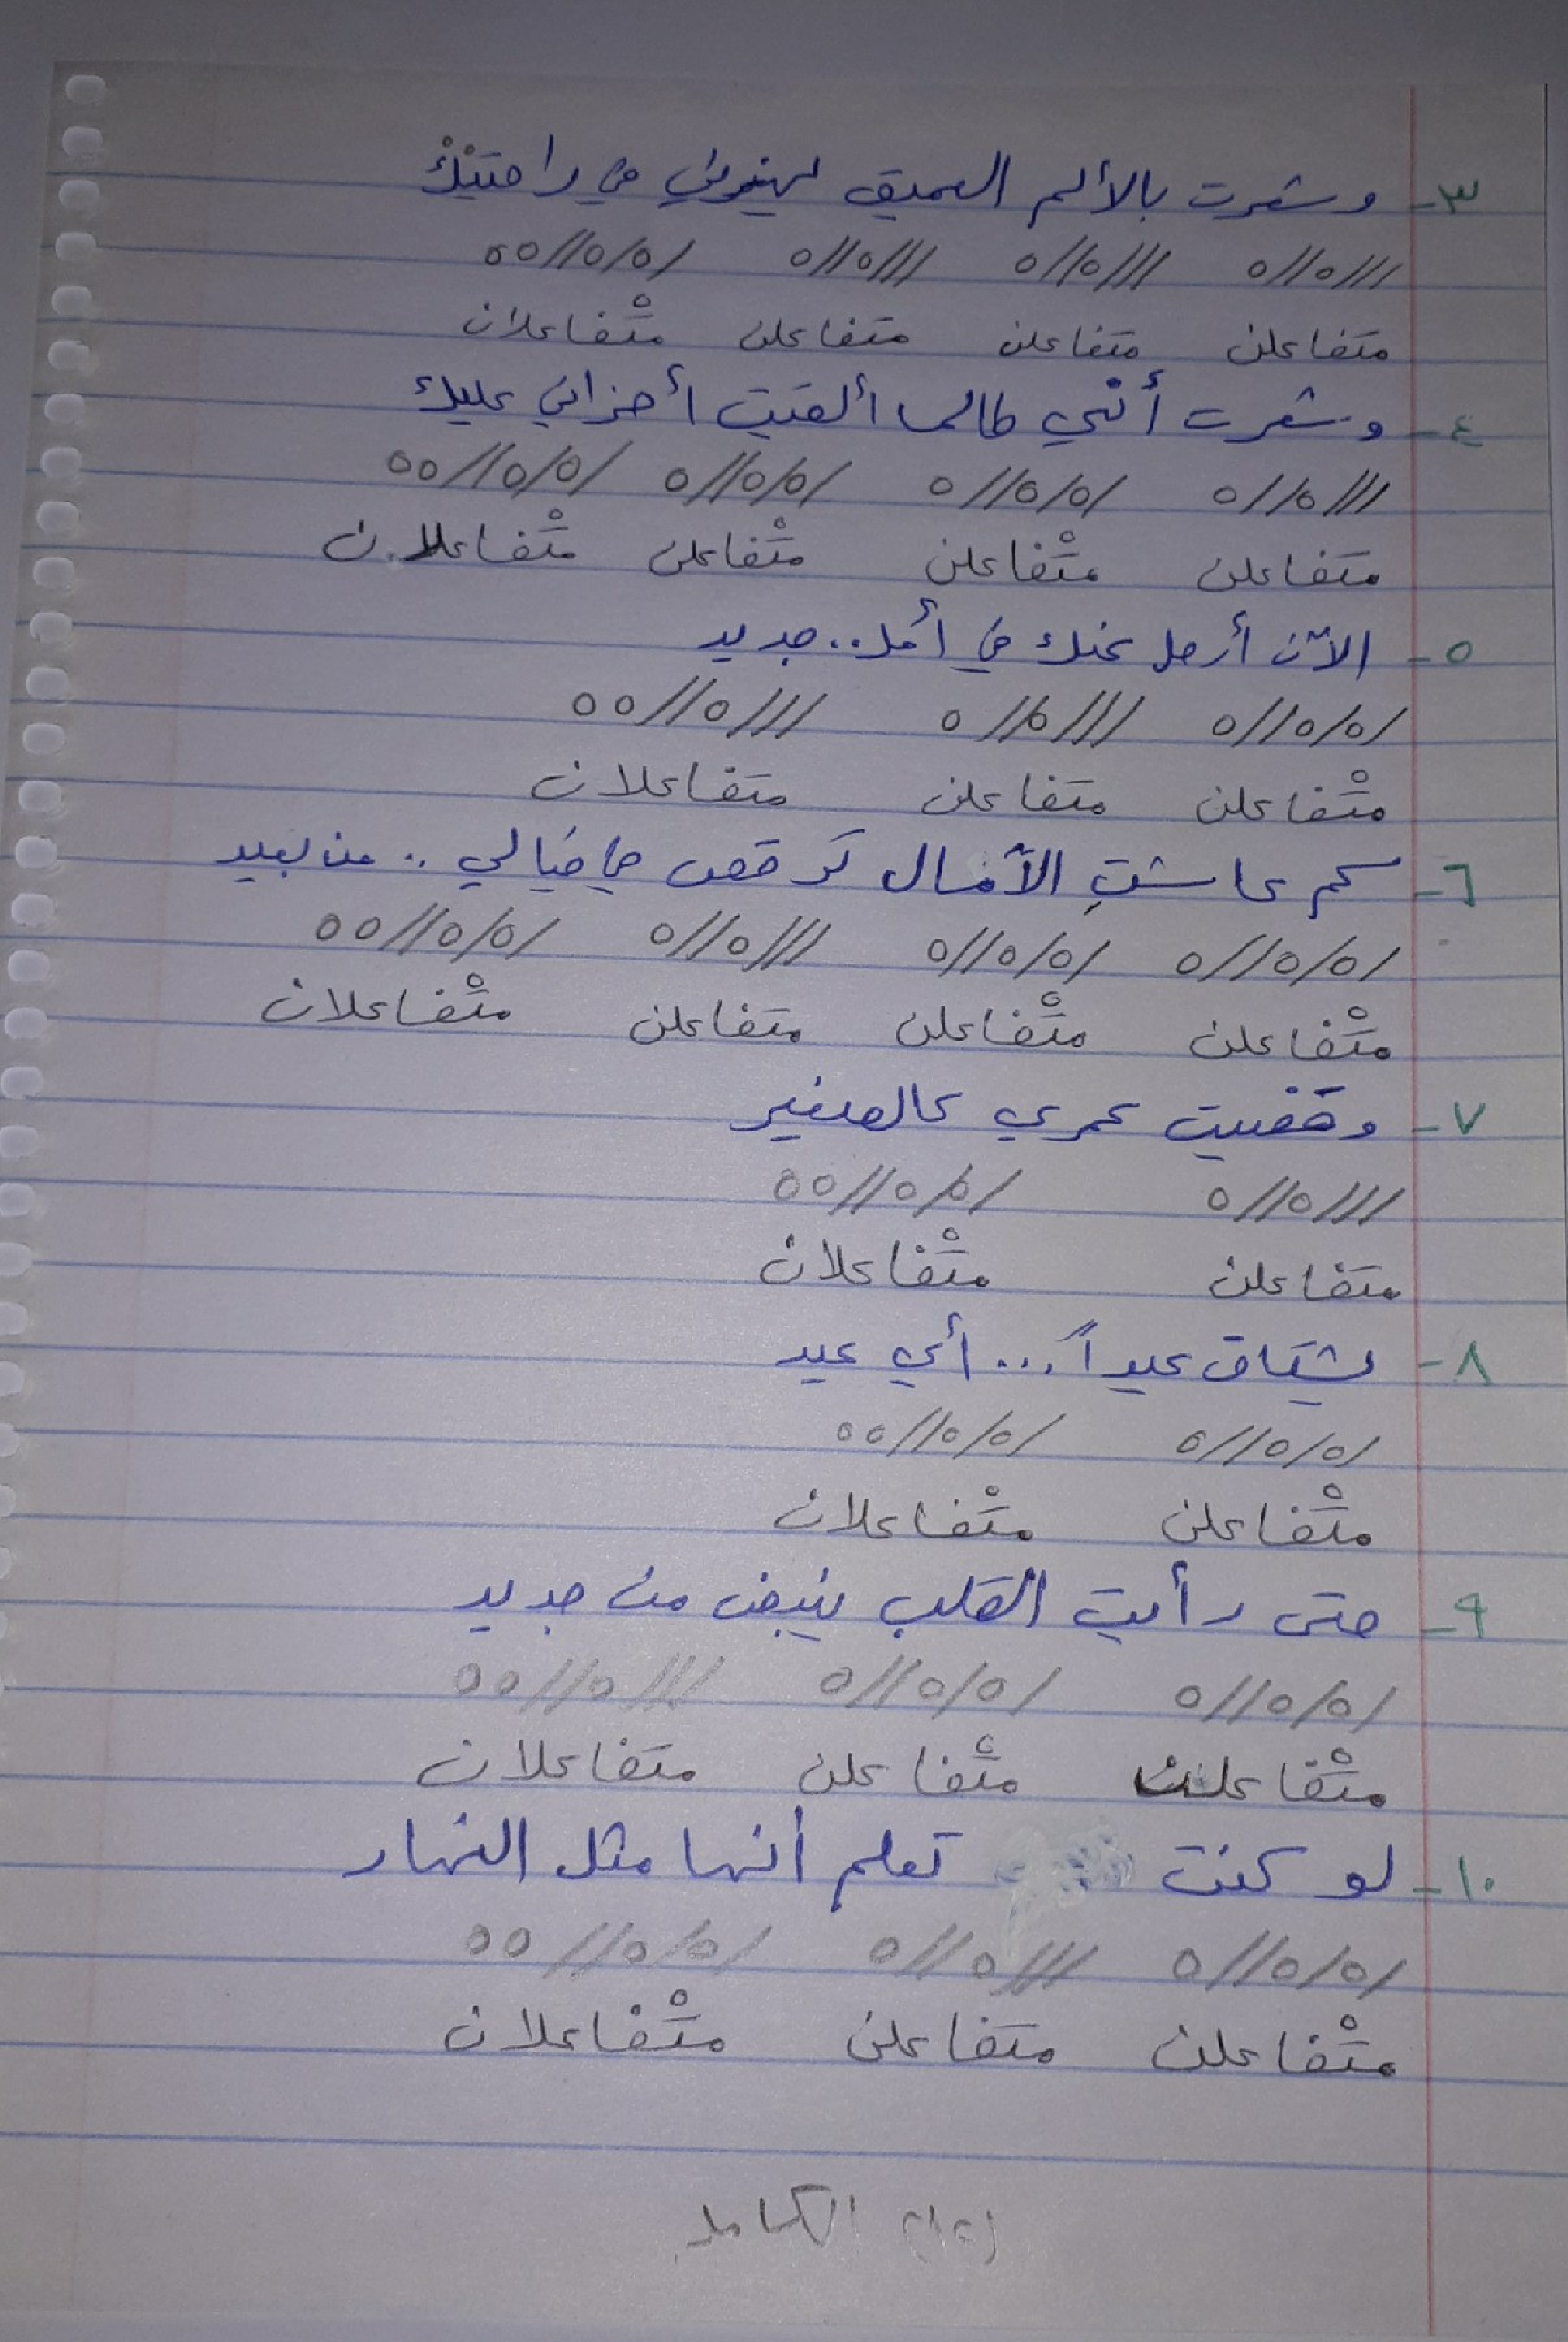 ٣- وشعرت بالألم العميق يهزني في راحتيْكْ
///٥//٥ ///٥//٥ ///٥//٥ /٥/٥//٥٥
متفاعلن متفاعلن متفاعلن متْفاعلان
٤- وشعرت أنّي طالما ألقيت أحزاني عليك
///٥//٥ /٥/٥//٥ /٥/٥//٥ /٥/٥//٥٥
متفاعلن متْفاعلن متْفاعلن متْفاعلان
٥- الآن أرحل عنك في أمل.. جديد
/٥/٥//٥ ///٥//٥ ///٥//٥٥
متْفاعلن متفاعلن متفاعلان
٦- كم عاشتِ الآمال ترقص في خيالي .. من بعيد
/٥/٥//٥ /٥/٥//٥ ///٥//٥ /٥/٥//٥٥
متْفاعلن متْفاعلن متفاعلن متْفاعلان
٧- وقضيت عمري كالصغير
///٥//٥ /٥/٥//٥٥
متفاعلن متْفاعلان
٨- يشتاق عيداً... أي عيد
/٥/٥//٥ /٥/٥//٥٥
متْفاعلن متْفاعلان
٩- حتى رأيت القلب ينبض من جديد
/٥/٥//٥ /٥/٥//٥ ///٥//٥٥
متْفاعلن متْفاعلن متفاعلان
١٠- لو كنت تعلم أنها مثل النهار
/٥/٥//٥ ///٥//٥ /٥/٥//٥٥
متْفاعلن متفاعلن متْفاعلان
الكامل